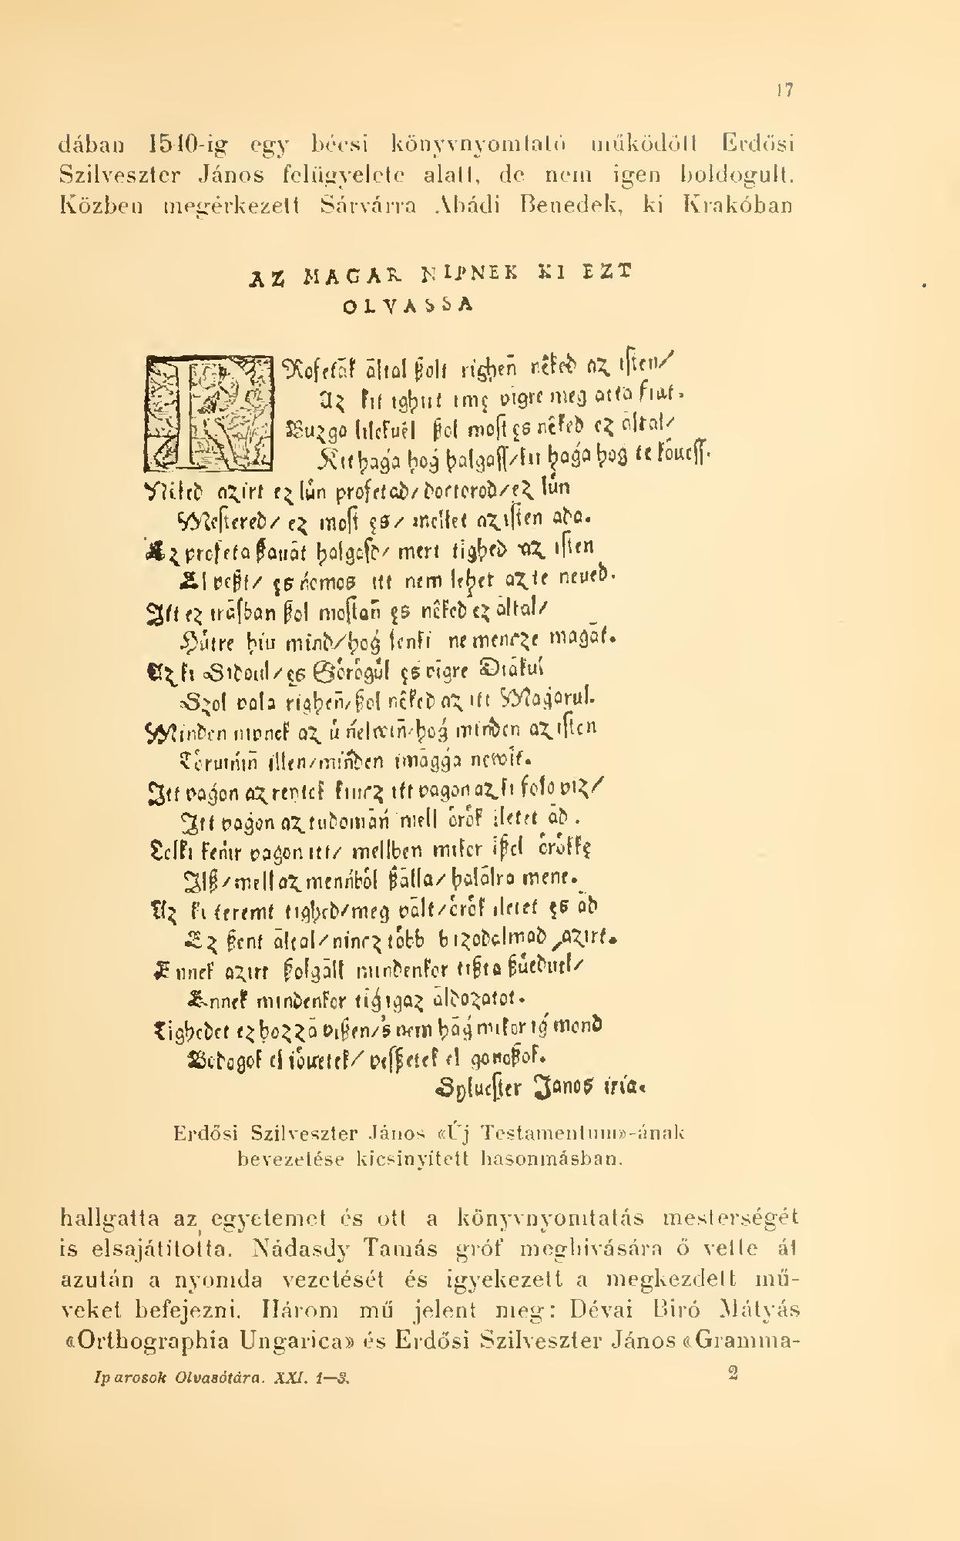 17
dában 1540-ig egy bécsi könyvnyomtató működött Erdősi
Szilveszter János felügyelete alatt, de nem igen boldogult.
Közben megérkezett Sárvárra Abádi Benedek, ki Krakóban
AZ MAGAR NIPNEK KI EZT
OLVASSA
által ßolt righen nêked az isten/
Az kit ighirt ime vigre meg atta fiat.
ßol most es nêked ez által/
Kit haga hog halgass/kit haga hog te kouess.
Nêked azirt ez lün profetad/doctorod/ez lün
Mestered/ ez most es/ mellet az isten ada.
Az profeta ßauát halgasd/ mert tighed az isten
El veßt/ es itt nem lehet az te neued.
Itt ez irásban ßol mostan es nêked ez által/
Hütre híu mind/hog senki ne mencze magát.
Ez ki Sidoul/es Görögül es vigre Diákul
Szol vala righen/ßol nêked az itt Magarul.
Minden nipnek az ü nelvin/hog minden az isten
Töruinin illen/minden imágga nevvit.
Itt vagon az reitek kincz itt vagon az ki folo viz/
Itt vagon az tudomán mell örök iletet ád.
Lelki kenir vagon itt/ mellben mikor ißel örökke
Ilß/mell az mennből ßálla/halálra mene.
Az ki teremt tighed/meg vált/örök iletet es ád
Ez ßent által/nincz több bizodalmad azirt.
Ennek azirt ßolgáll mindenkor tißta ßüedvel/
Ennek mindenkor tigi igaz áldozatot.
Tighedet ez hozzá vißen/s nem hág mikor ig mond
el iöuetek/ veßßetek el gonoßok.
Syluester Janos irta.
Erdősi Szilveszter János «Új Testamentum»-ának
bevezetése kicsinyített hasonmásban.
hallgatta az egyetemet és ott a könyvnyomtatás mesterségét
is elsajátította. Nádasdy Tamás gróf meghivására ő vette át
azután a nyomda vezetését és igyekezett a megkezdett mű-
veket befejezni. Három mű jelent meg: Dévai Biró Mátyás
«Orthographia Ungarica» és Erdősi Szilveszter János «Gramma-
Iparosok Olvasótára. XXI. 1—3. 2